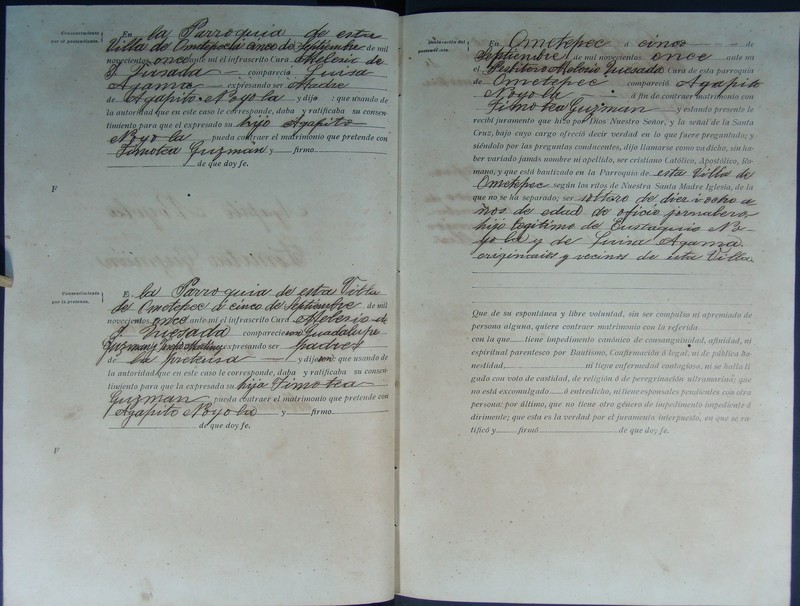 Consentimiento
por el pretendiente.
En la Parroquia de esta
Villa de Ometepec a cinco de Septiembre de mil
novecientos once ante mí el infrascrito Cura Melesio de
J. Quesada compareció Luisa
Agama expresando ser Madre
de Agapito Noyola y dijo : que usando de
la autoridad que en este caso le corresponde, daba y ratificaba su consen-
timiento para que el expresado su hijo Agapito
Noyola pueda contraer el matrimonio que pretende con
Timotea Guzmán y firmo
de que doy fe.
F
Consentimiento
por la pretensa.
En la Parroquia de esta Villa
de Ometepec á cinco de Septiembre de mil
novecientos once ante mí el infrascrito Cura Melesio de
J. Quesada comparecieron Guadalupe
Guzman y expresando ser padres
de la pretensa y dijeron: que usando de
la autoridad que en este caso le corresponde, daba y ratificaba su consen-
timiento para que la expresada su hija Timotea
Guzman pueda contraer el matrimonio que pretende con
Agapito Noyola y firmo
de que doy fe.
F
Declaración del
pretendiente.
En Ometepec a cinco de
Septiembre de mil novecientos once ante mí
el Presbítero Melesio Quesada Cura de esta parroquia
de Ometepec compareció Agapito
Noyola á fin de contraer matrimonio con
Timotea Guzmán y estando presente le
recibí juramento que hizo por Dios Nuestro Señor, y la señal de la Santa
Cruz, bajo cuyo cargo ofreció decir verdad en lo que fuere preguntado; y
siéndolo por las preguntas conducentes, dijo llamarse como va dicho, sin ha-
ber variado jamás nombre ni apellido, ser cristiano Católico, Apostólico, Ro-
mano, y que está bautizado en la Parroquia de esta Villa de
Ometepec según los ritos de Nuestra Santa Madre Iglesia, de la
que no se ha separado; ser soltero de diez i ocho a
ños de edad de oficio jornalero,
hijo legítimo de Eustaquio No-
yola y de Luisa Agama
originarios y vecinos de esta Villa.
Que de su espontánea y libre voluntad, sin ser compulso ni apremiado de
persona alguna, quiere contraer matrimonio con la referida
con la que tiene impedimento canónico de consanguinidad, afinidad, ni
espiritual parentesco por Bautismo, Confirmación ó legal, ni de pública ho-
nestidad, ni tiene enfermedad contagiosa, ni se halla li
gado con voto de castidad, de religión ó de peregrinación ultramarina; que
no está excomulgado ó entredicho, ni tiene esponsales pendientes con otra
persona: por último, que no tiene otro género de impedimento impediente ó
dirimente; que esta es la verdad por el juramento interpuesto, en que se ra-
tificó y firmó de que doy fe.